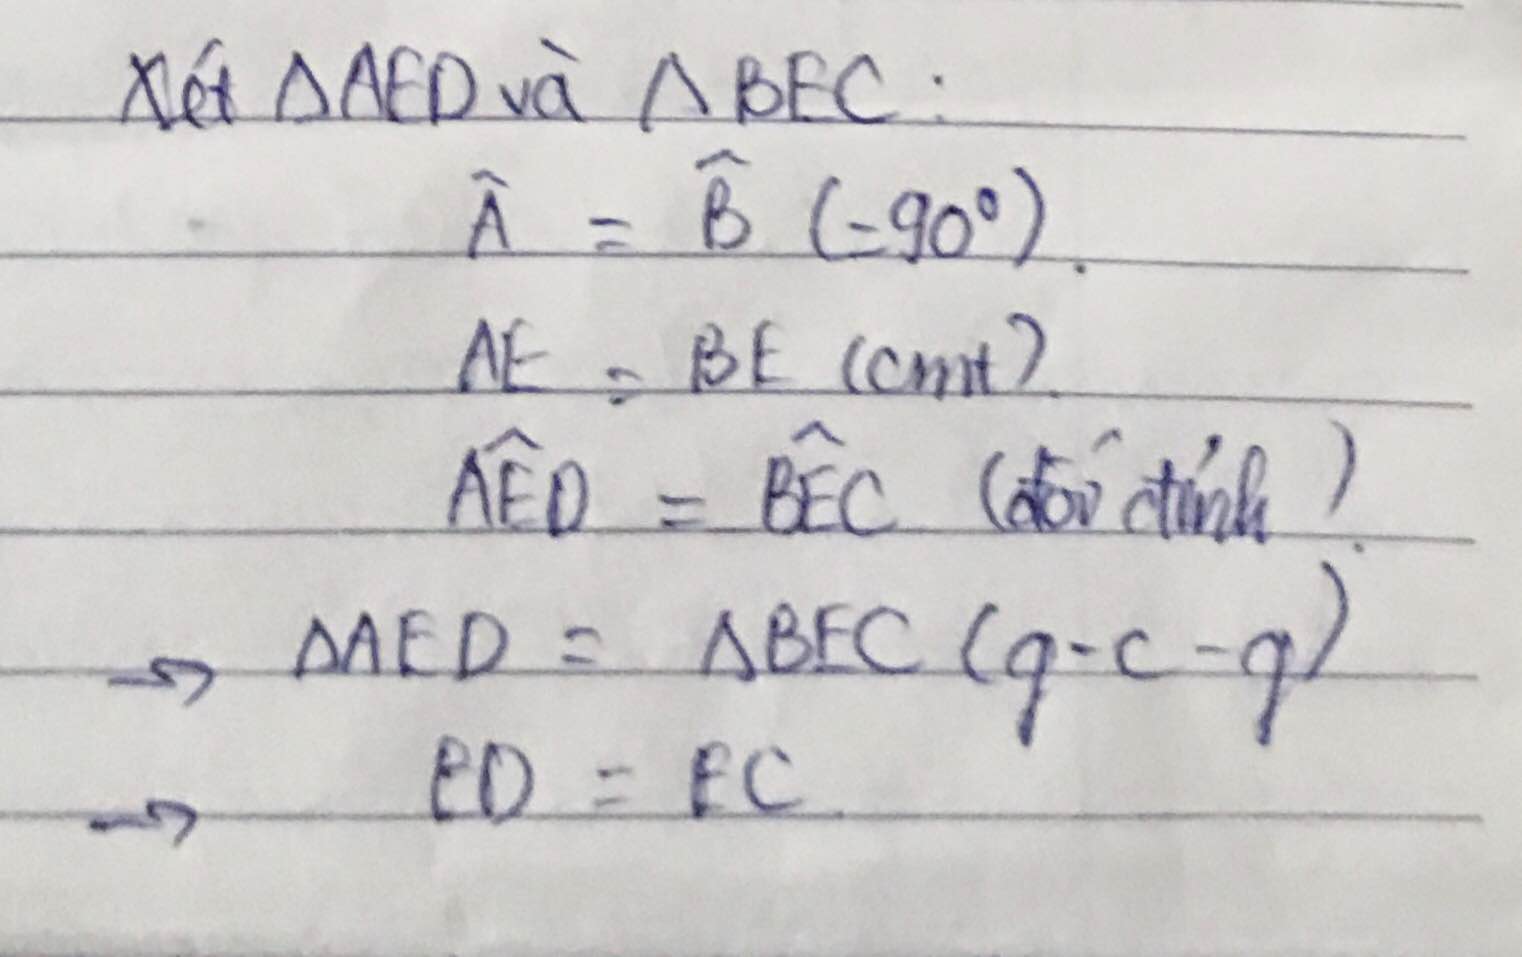 Xét ΔAED và ΔBEC :
Â = B̂ (=90°).
AE = BE (cmt).
AÊD = BÊC (đối đỉnh).
→ ΔAED = ΔBEC (g-c-g)
→ ED = EC